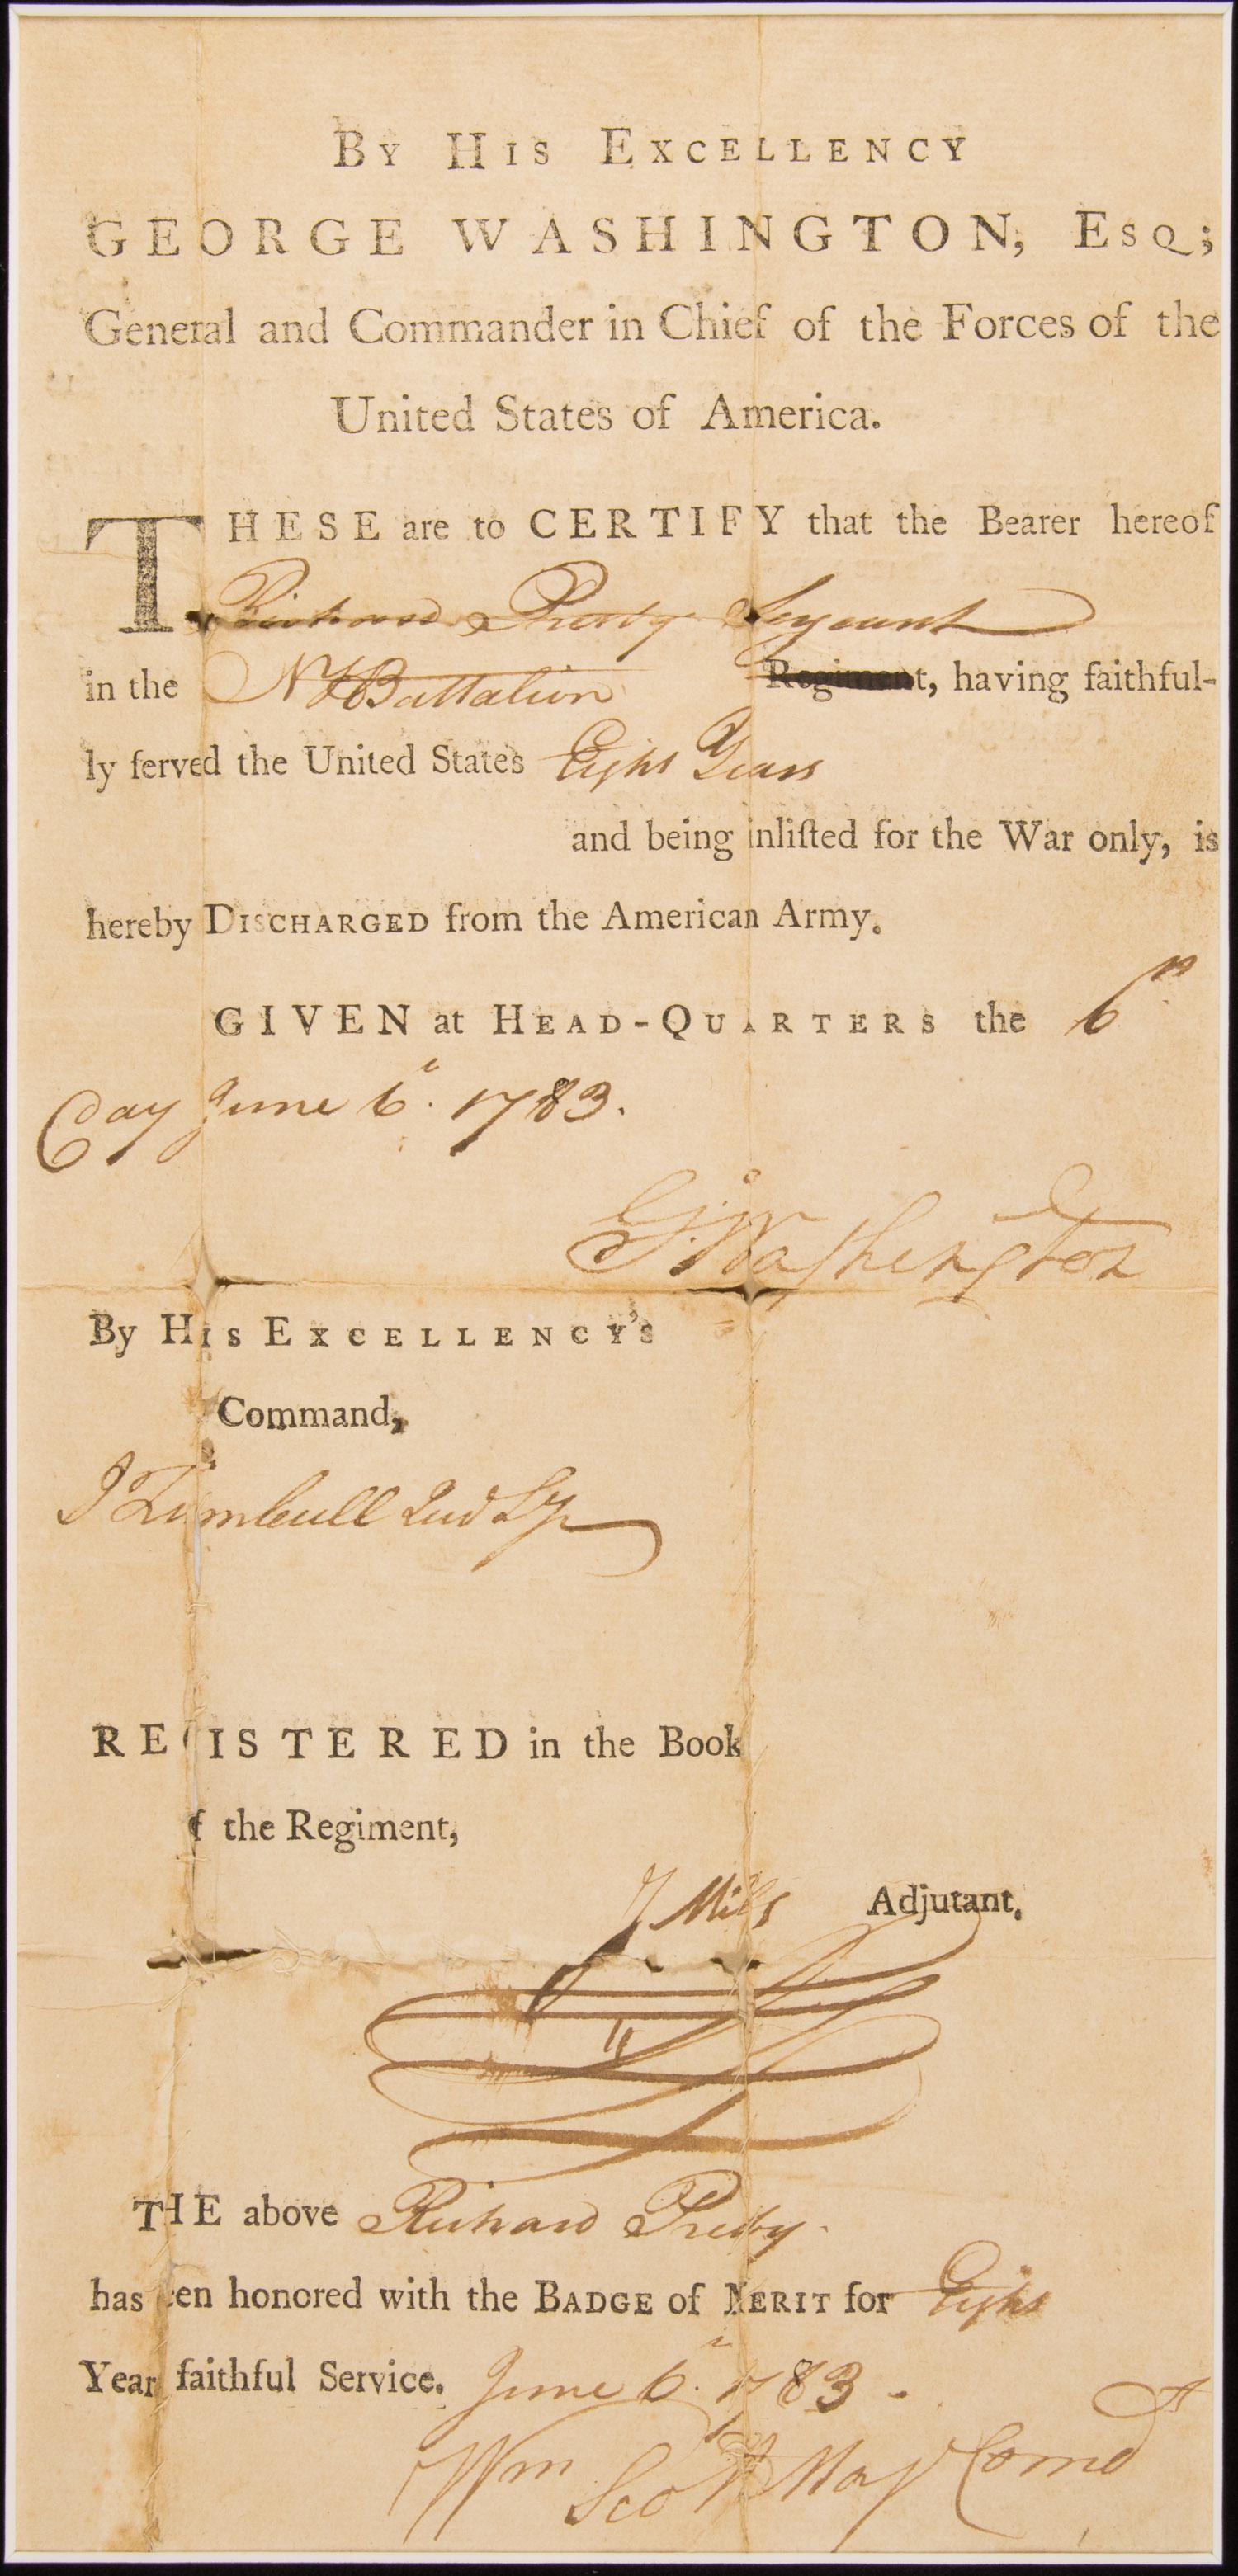 By His Excellency
GEORGE WASHINGTON, Esq;
General and Commander in Chief of the Forces of the
United States of America.
THESE are to CERTIFY that the Bearer hereof
Richard Preby Serjeant
in the NH Battalion Regiment, having faithful-
ly ſerved the United States Eight Years
and being inliſted for the War only, is
hereby Discharged from the American Army.
GIVEN at Head-Quarters the 6th
Day June 6th 1783.
G:Washington
By His Excellency's
Command,
J Trumbull Jun Sy
REGISTERED in the Book
f the Regiment,
J Mills Adjutant.
THE above Richard Preby
has een honored with the Badge of Merit for Eight
Year faithful Service. June 6th 1783 -
Wm Scott Maj Comd